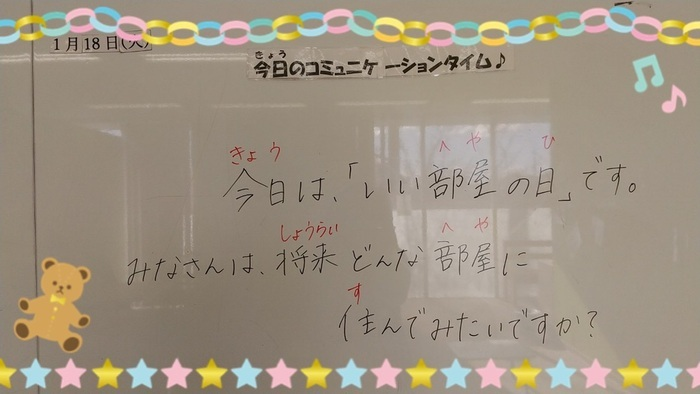 1月18日(火)
きょう
今日のコミュニケーションタイム♪
きょう へや ひ
今日は、「いい部屋の日」です。
しょうらい へや
みなさんは、将来どんな部屋に
す
住んでみたいですか?